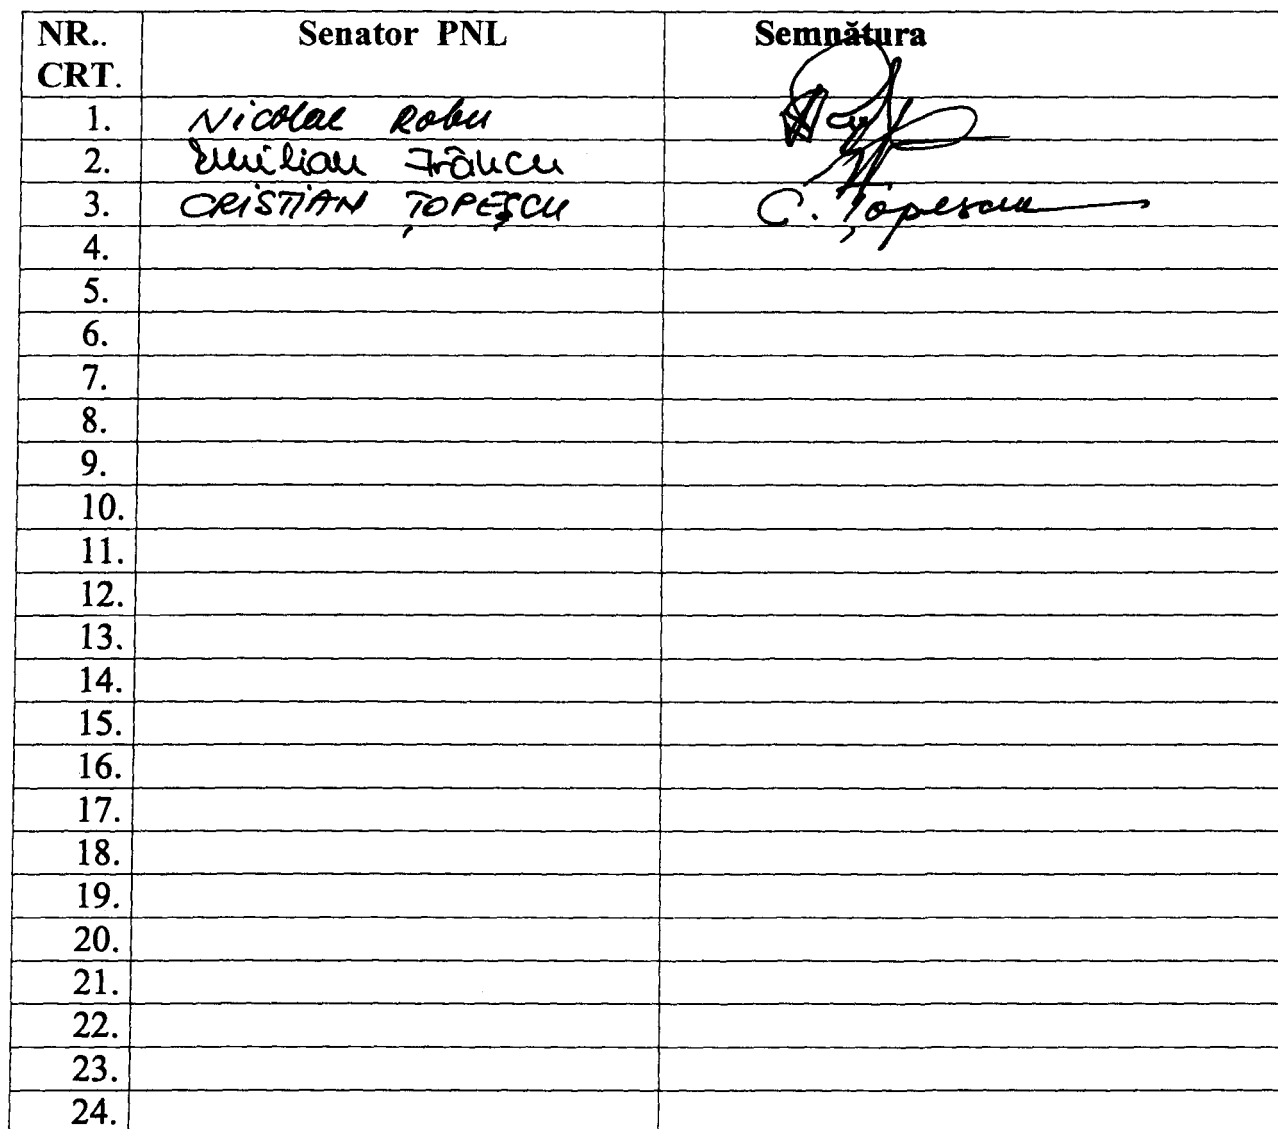 NR.. Senator PNL Semnătura
CRT.
1. Nicolae Robu
2. Emilian Frâncu
3. CRISTIAN ȚOPEȘCU C. Țopescu
4.
5.
6.
7.
8.
9.
10.
11.
12.
13.
14.
15.
16.
17.
18.
19.
20.
21.
22.
23.
24.